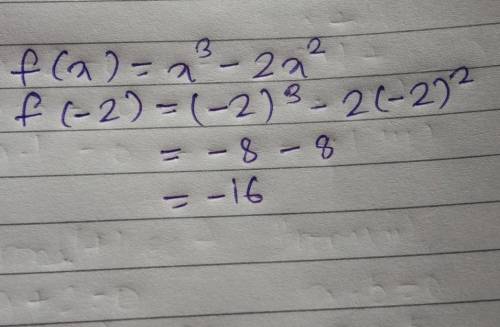 f(x) = x³ - 2x²
f(-2) = (-2)³ - 2(-2)²
= -8 - 8
= -16